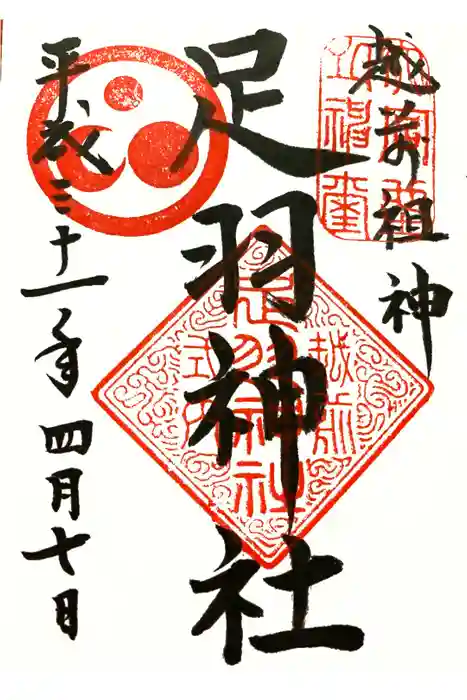 越前祖神
足羽神社
平成三十一年四月七日
越前
足羽神社
式内